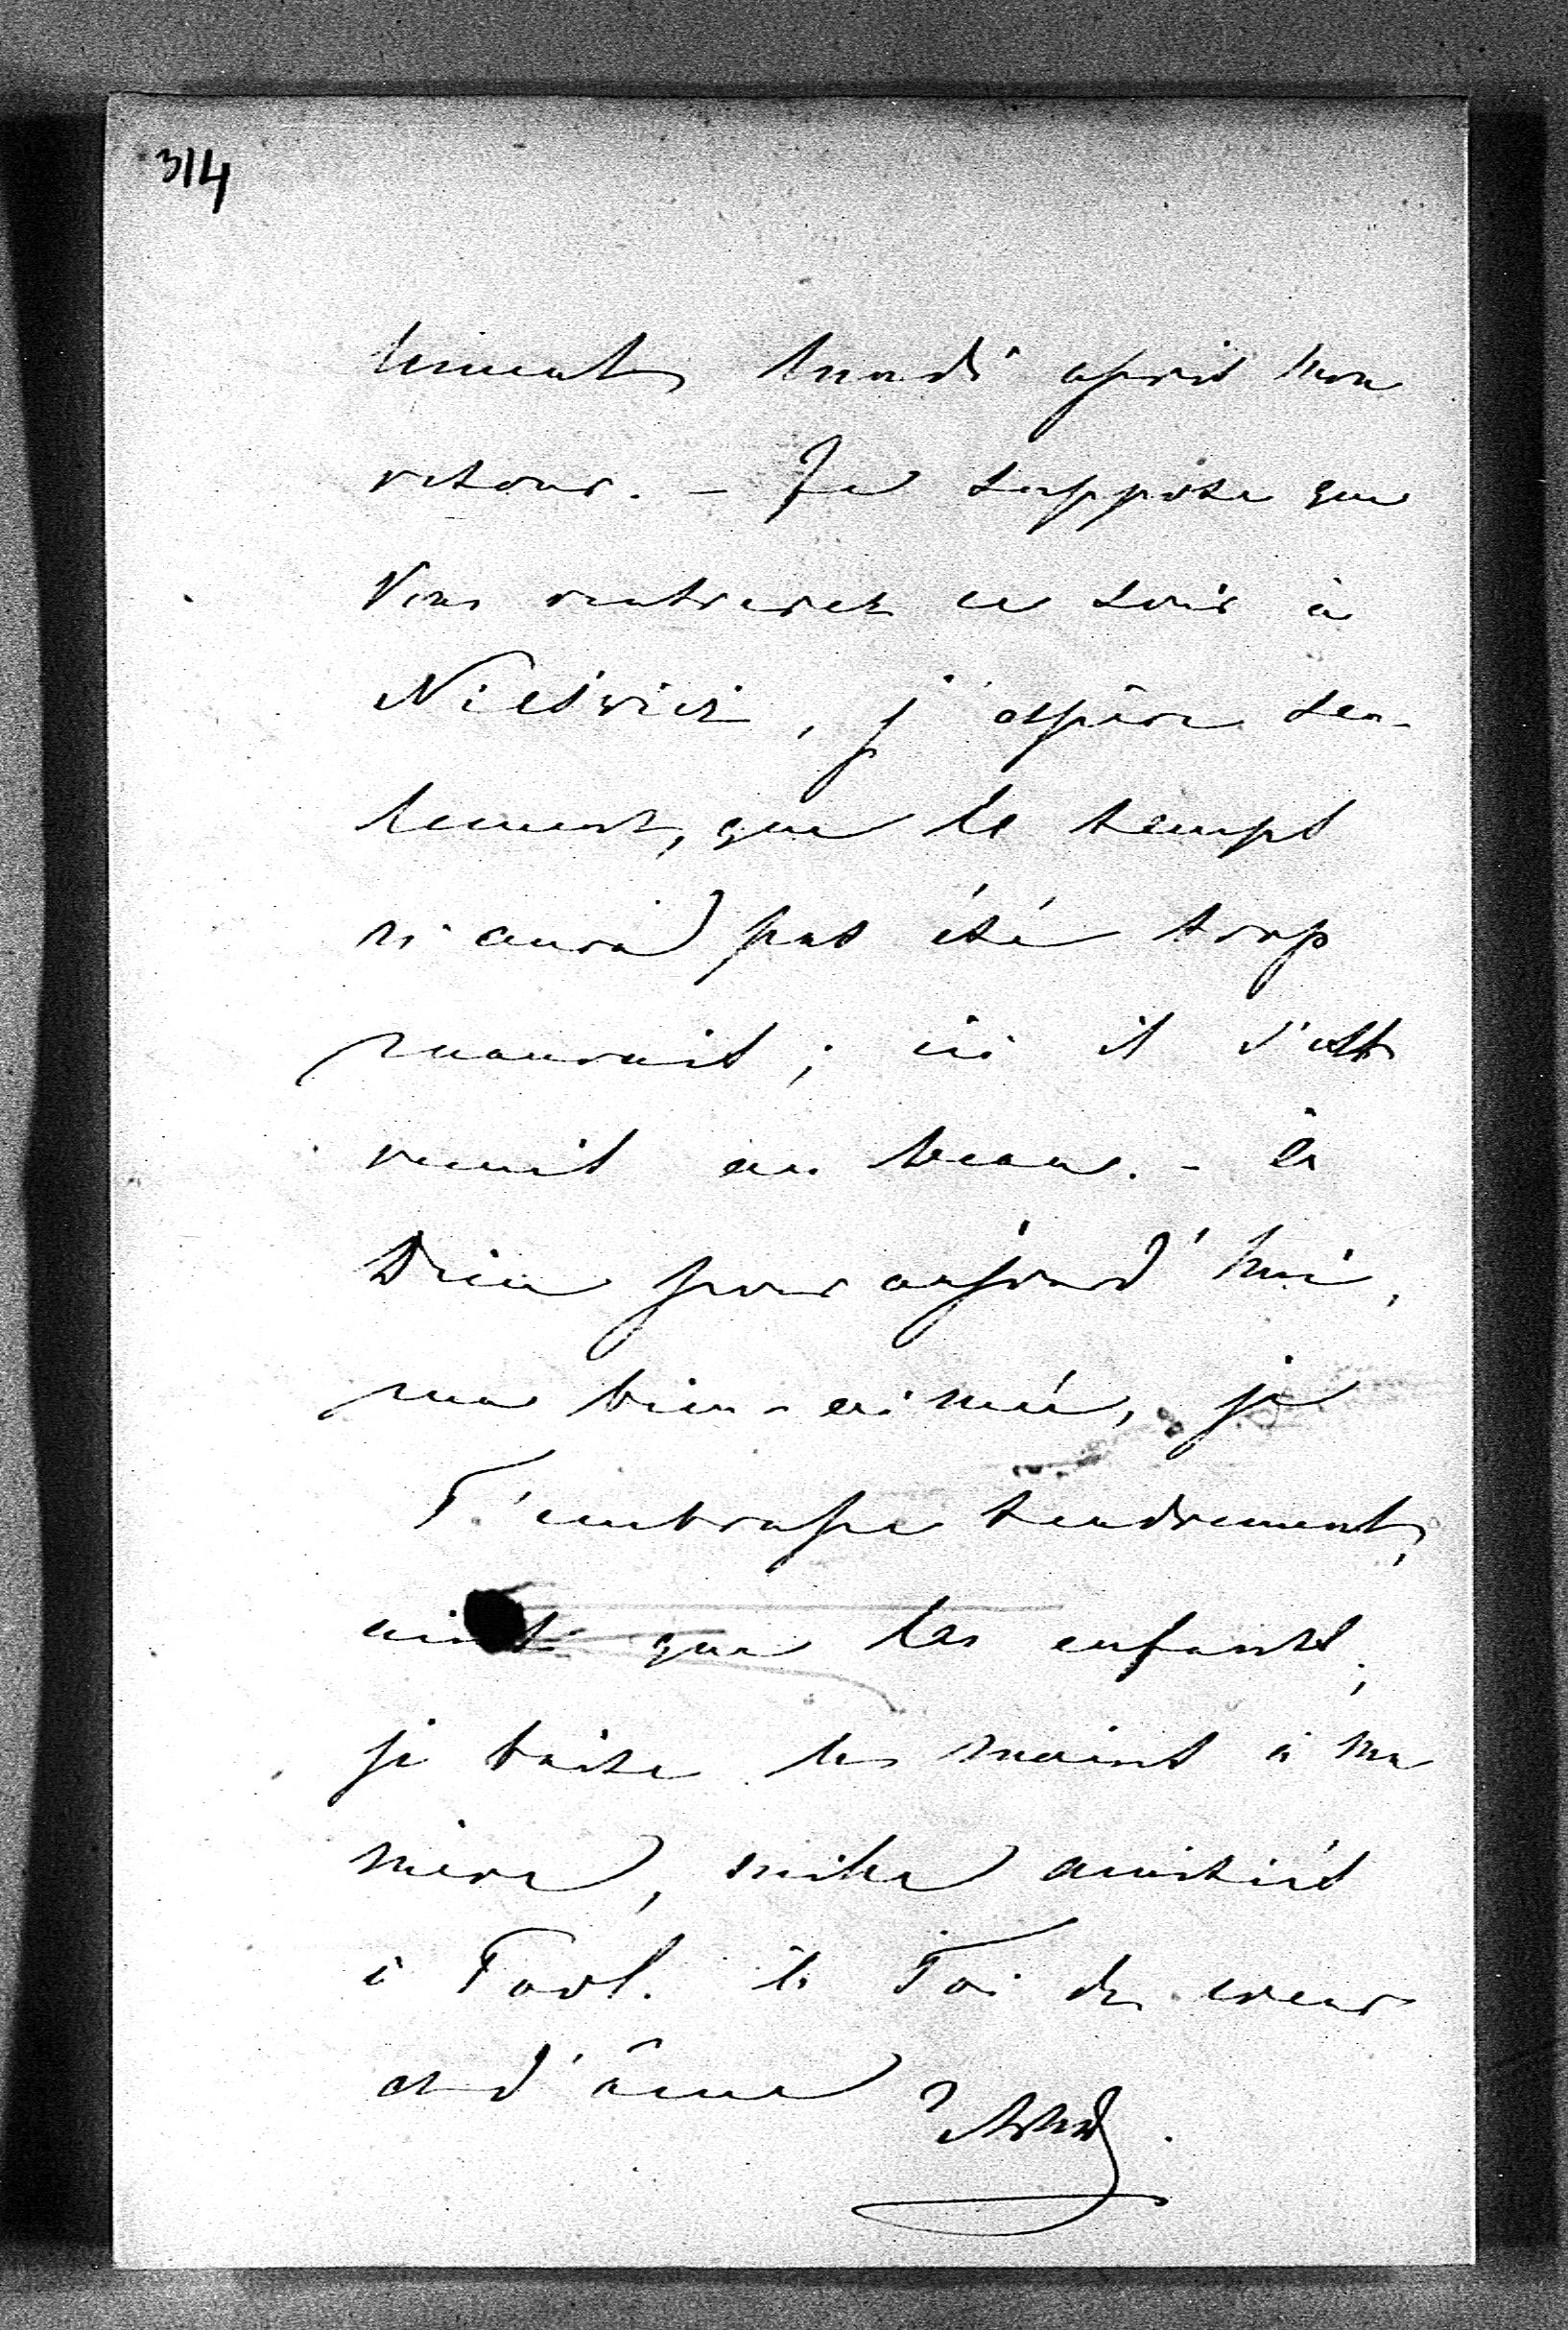 314
lement, lundi après mon
retour. – Je suppose que
Vous rentrerez ce soir à
Nieświeiz, j'espère seu-
lement, que le temps
n'aura pas été trop
mauvais; ici il s'est
remis au beau. – à
Dieu pour aujourd'hui,
ma bien-aimée, je
T'embrasse tendrement,
ainsi que les enfants,
je baise les mains à ma
mère, mille amitiés
à à Toi de coeur
et d'âme